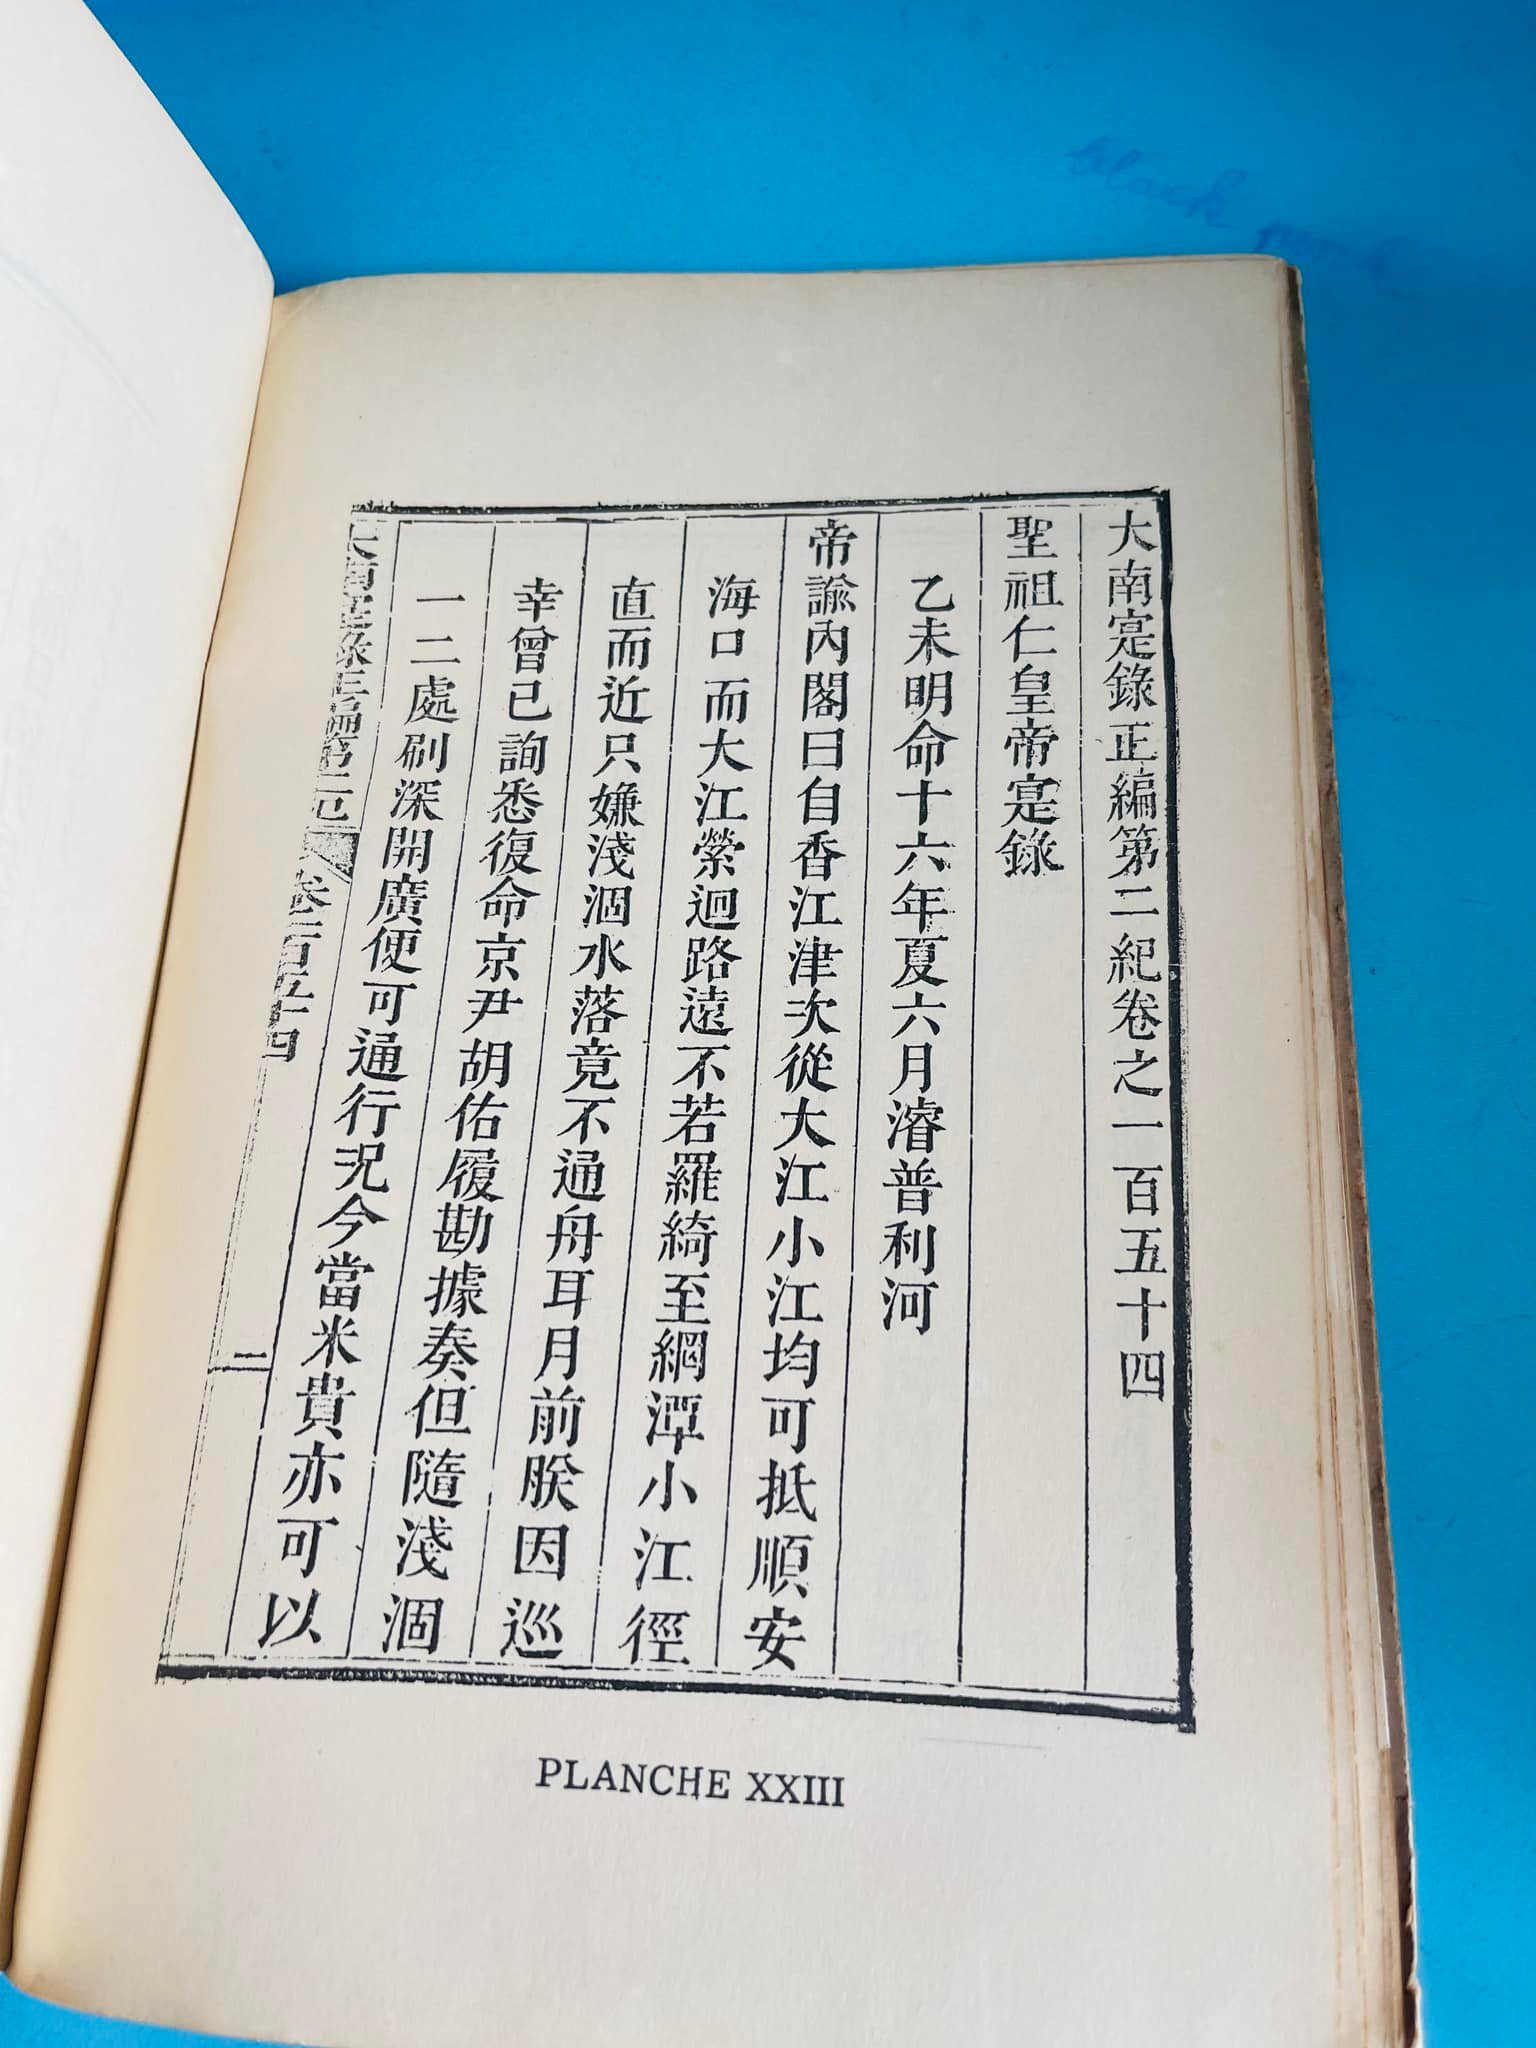 大南寔錄正編第二紀卷之一百五十四
聖祖仁皇帝寔錄
乙未明命十六年夏六月濬普利河
帝諭內閣曰自香江津次從大江小江均可抵順安
海口而大江縈迴路遠不若羅綺至網潭小江徑
直而近只嫌淺涸水落竟不通舟耳月前朕因巡
幸曾已詢悉復命京尹胡佑履勘據奏但隨淺涸
一二處刷深開廣便可通行況今當米貴亦可以
大南寔錄正編第二紀 卷一百五十四 一
PLANCHE XXIII
black